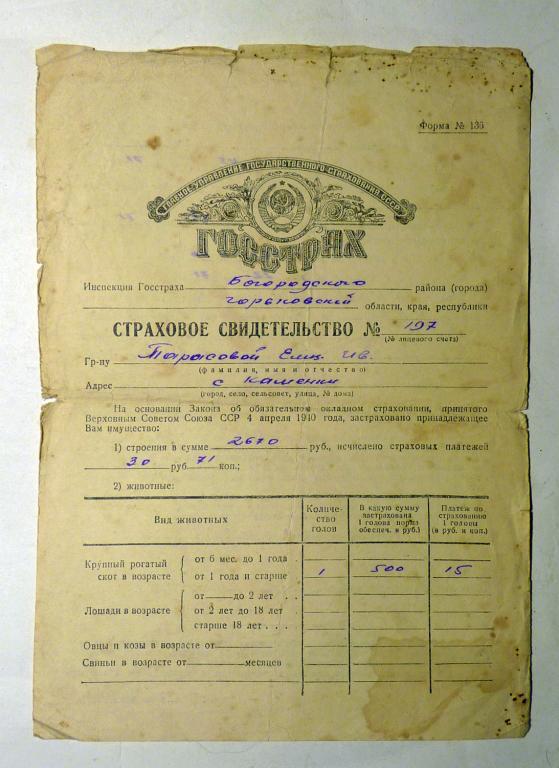 Форма № 136
ГЛАВНОЕ УПРАВЛЕНИЕ ГОСУДАРСТВЕННОГО СТРАХОВАНИЯ СССР
ГОССТРАХ
Инспекция Госстраха Богородского района (города)
Горьковский области, края, республики
СТРАХОВОЕ СВИДЕТЕЛЬСТВО № 197
(№ лицевого счета)
Гр-ну Тарасовой Елиз. Ив.
(фамилия, имя и отчество)
Адрес с Каменки
(город, село, сельсовет, улица, № дома)
На основании Закона об обязательном окладном страховании, принятого
Верховным Советом Союза ССР 4 апреля 1940 года, застраховано принадлежащее
Вам имущество:
1) строения в сумме 2670 руб., исчислено страховых платежей
30 руб. 71 коп.;
2) животные:
Вид животных
Количе-
ство
голов
В какую сумму
застрахована
1 голова норма
обеспеч. в руб.)
Платеж по
страхованию
1 головы
(в руб. и коп.)
Крупный рогатый
скот в возрасте
от 6 мес. до 1 года .
от 1 года и старше 1 500 15
Лошади в возрасте
от — до 2 лет . .
от 2 лет до 18 лет .
старше 18 лет . . .
Овцы и козы в возрасте от
Свиньи в возрасте от месяцев